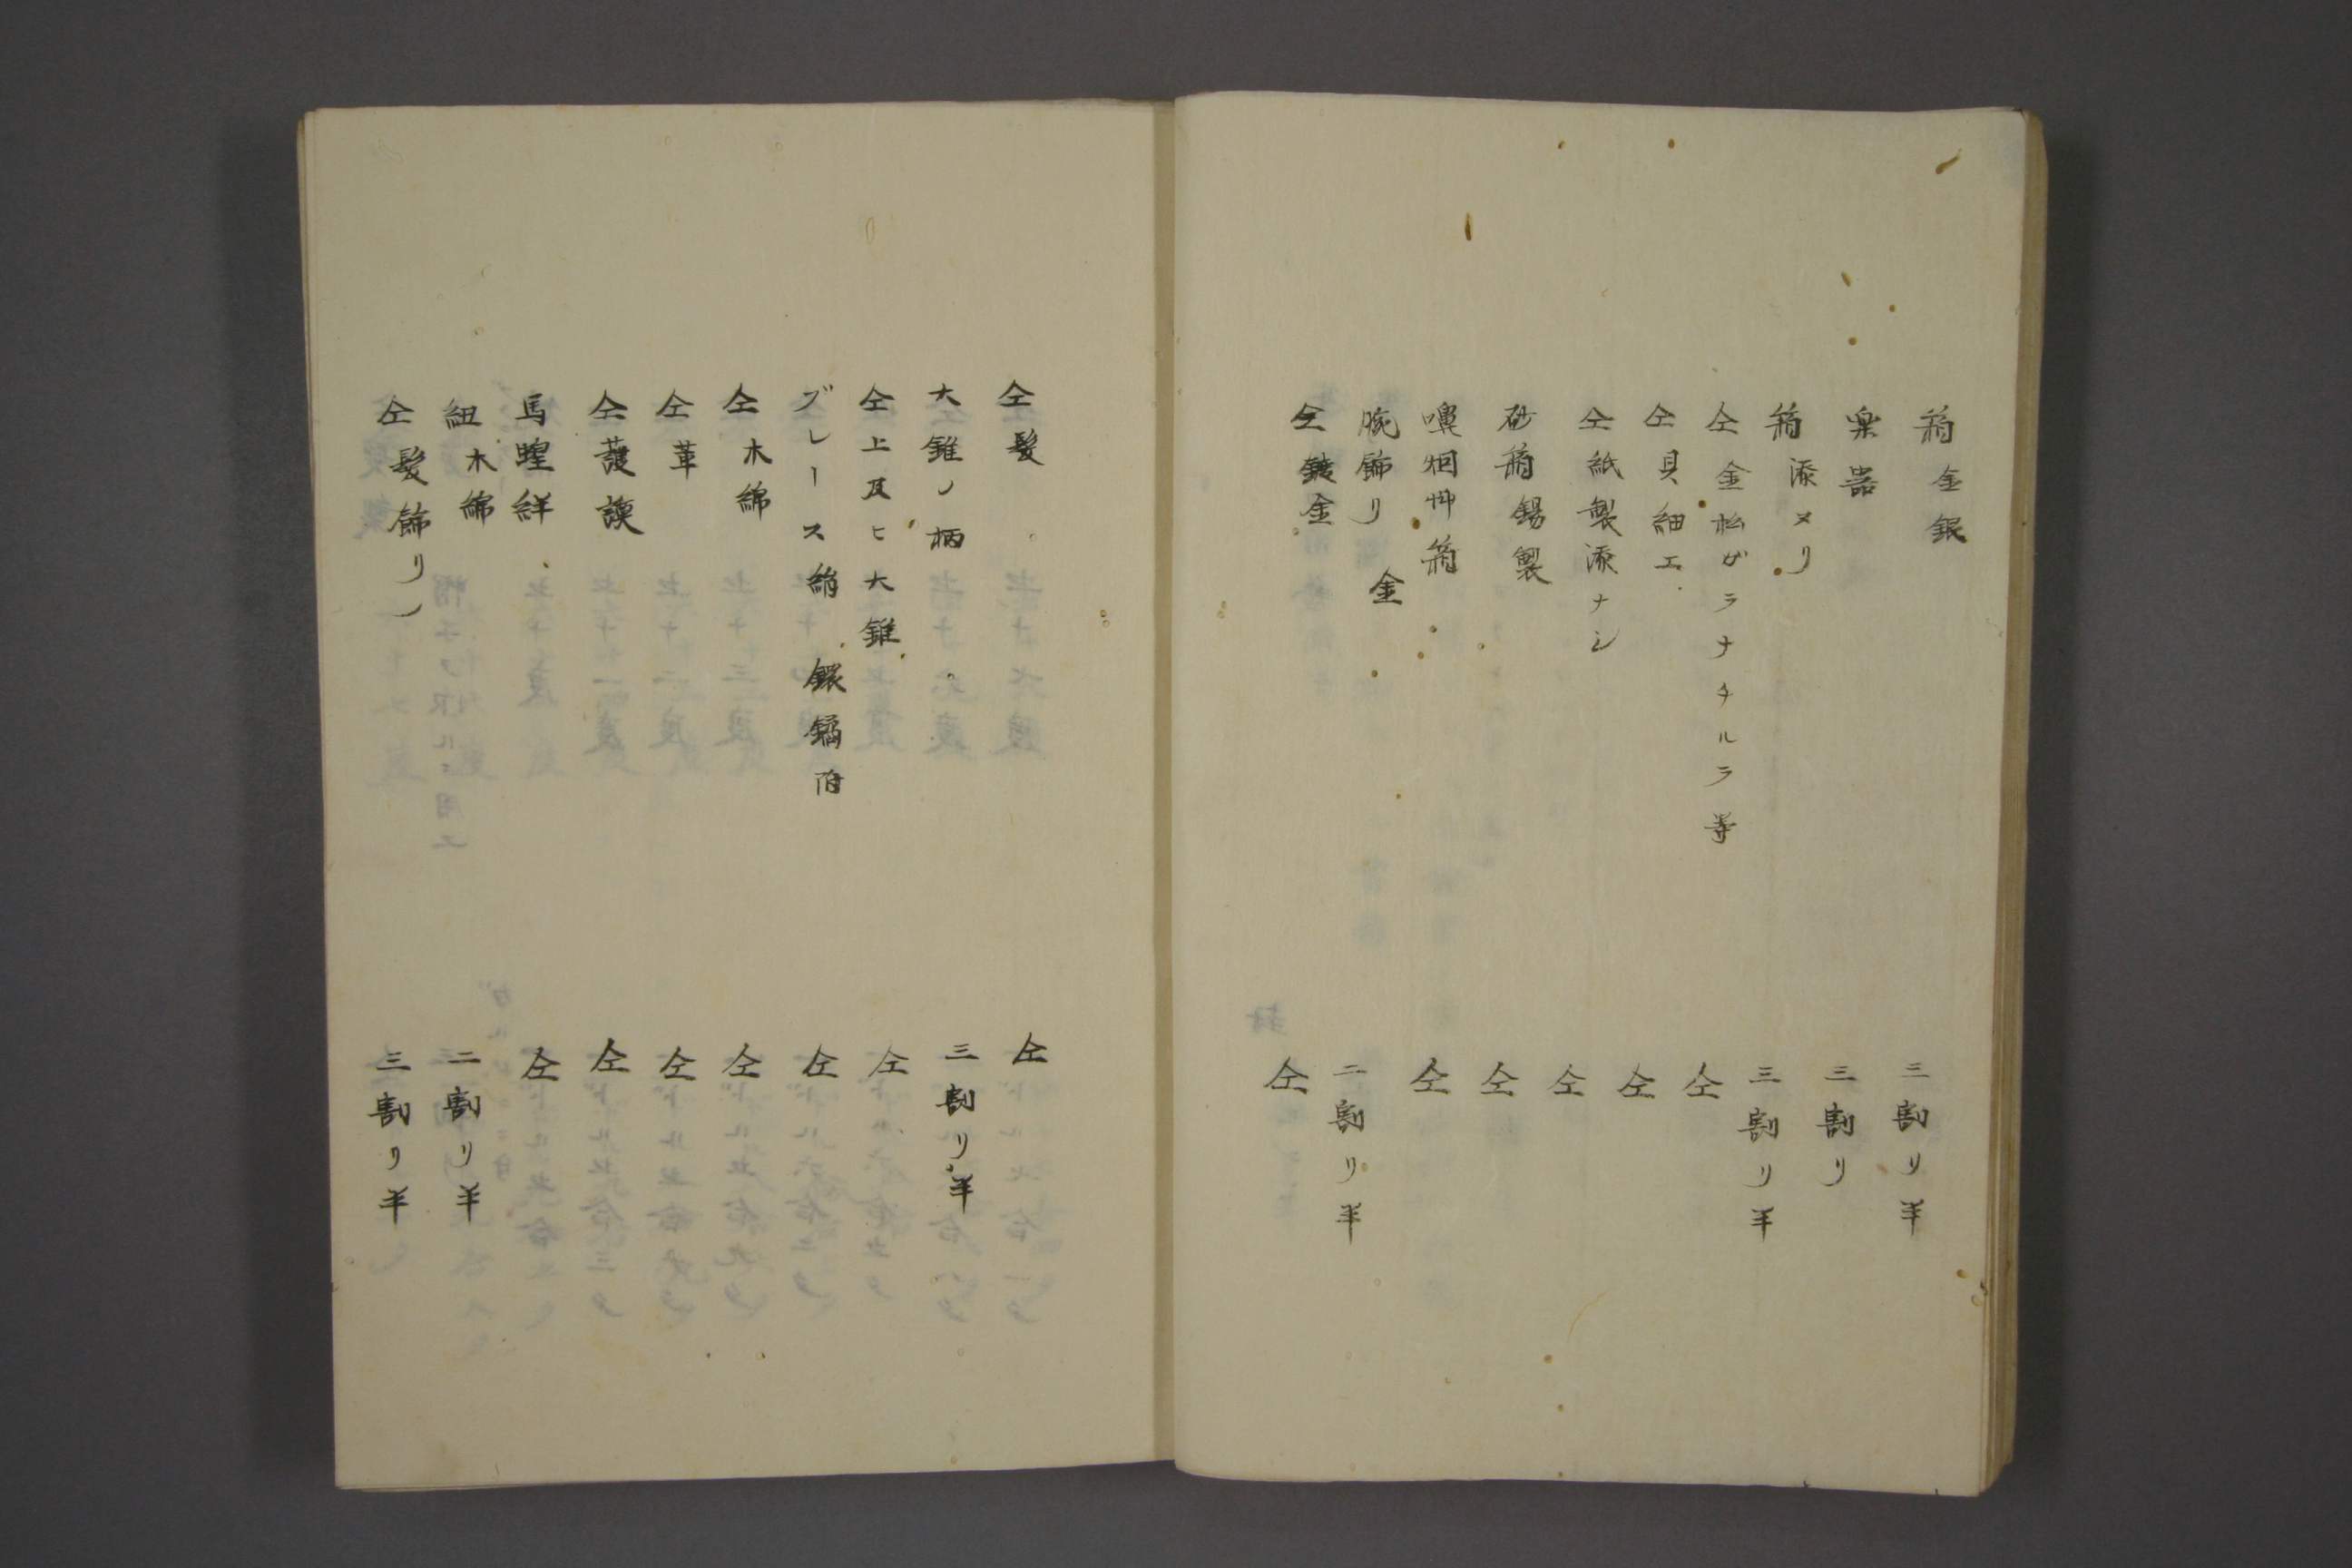 箱金銀 三割リ半
楽器 三割リ
箱漆ヌリ 三割リ半
仝金松ガラナチルラ等 仝
仝貝細工 仝
仝紙製漆ナシ 仝
砂箱錫製 仝
嗅烟艸箱 仝
腕飾リ 金 二割リ半
仝鍍金 仝
仝髪 仝
大錐ノ柄 三割リ半
仝上及ヒ大錐 仝
ブレース 鐶鐍附 仝
仝木綿 仝
仝革 仝
仝護謨 仝
馬 仝
紐木綿 二割リ半
仝髪飾リノ 三割リ半